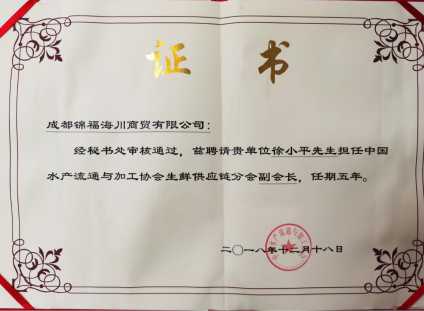 证书
成都锦福海川商贸有限公司：
经秘书处审核通过，兹聘请贵单位徐小平先生担任中国
水产流通与加工协会生鲜供应链分会副会长，任期五年。
二〇一八年十二月十八日